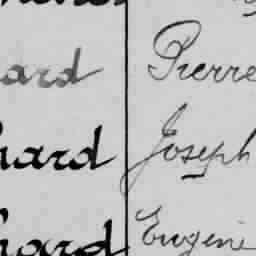 ard Pierre
hard Joseph
hard Eugène